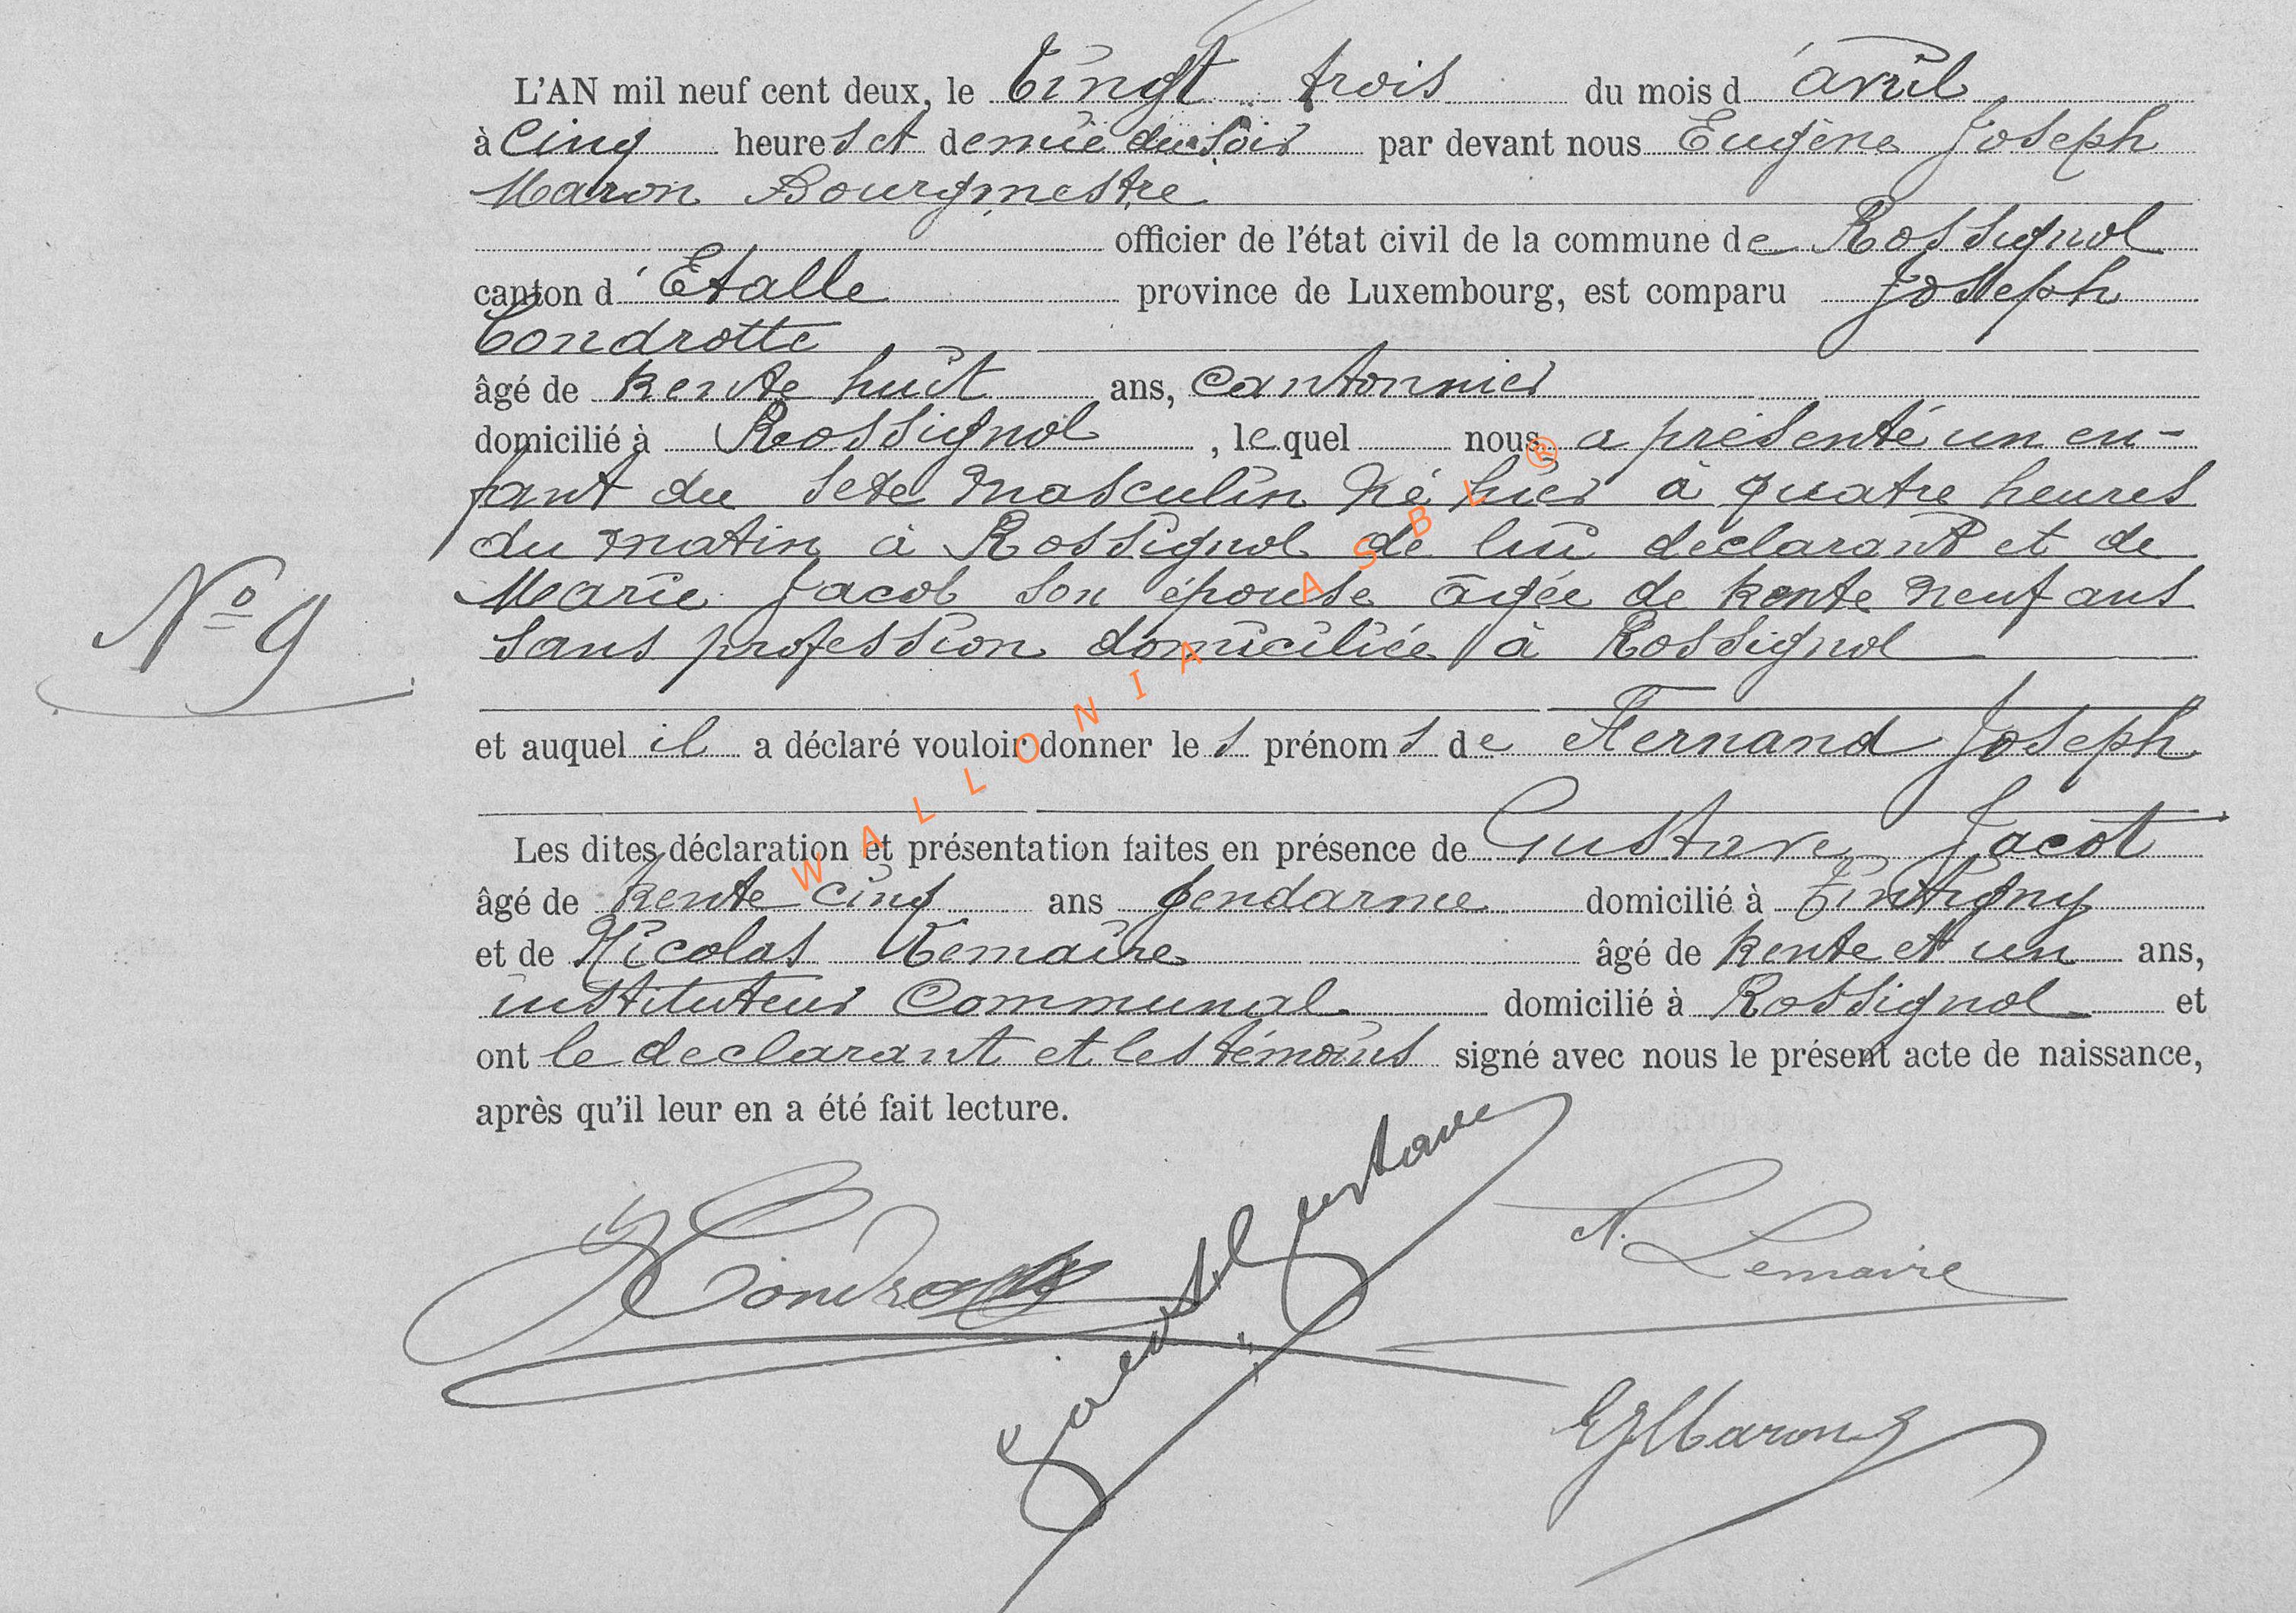 L'AN mil neuf cent deux, le vingt trois du mois d'avril
à cinq heures et demie du soir par devant nous Eugène Joseph
Maron Bourgmestre
officier de l'état civil de la commune de Rossignol
canton d'Etalle province de Luxembourg, est comparu Joseph
Condrotte
âgé de trente huit ans, cantonnier
domicilié à Rossignol, lequel nous a présenté un en-
fant du sexe masculin né hier à quatre heures
du matin à Rossignol de lui déclarant et de
Marie Jacob son épouse âgée de trente neuf ans
sans profession domiciliée à Rossignol
N° 9
et auquel il a déclaré vouloir donner les prénoms de Fernand Joseph
Les dites déclaration et présentation faites en présence de Gustave Jacot
âgé de trente cinq ans gendarme domicilié à Tintigny
et de Nicolas Lemaire âgé de trente et un ans,
instituteur communal domicilié à Rossignol et
ont le declarant et les témoins signé avec nous le présent acte de naissance,
après qu'il leur en a été fait lecture.
Gustave
N. Lemaire
EJMaron
WALLONIA ASBL ®